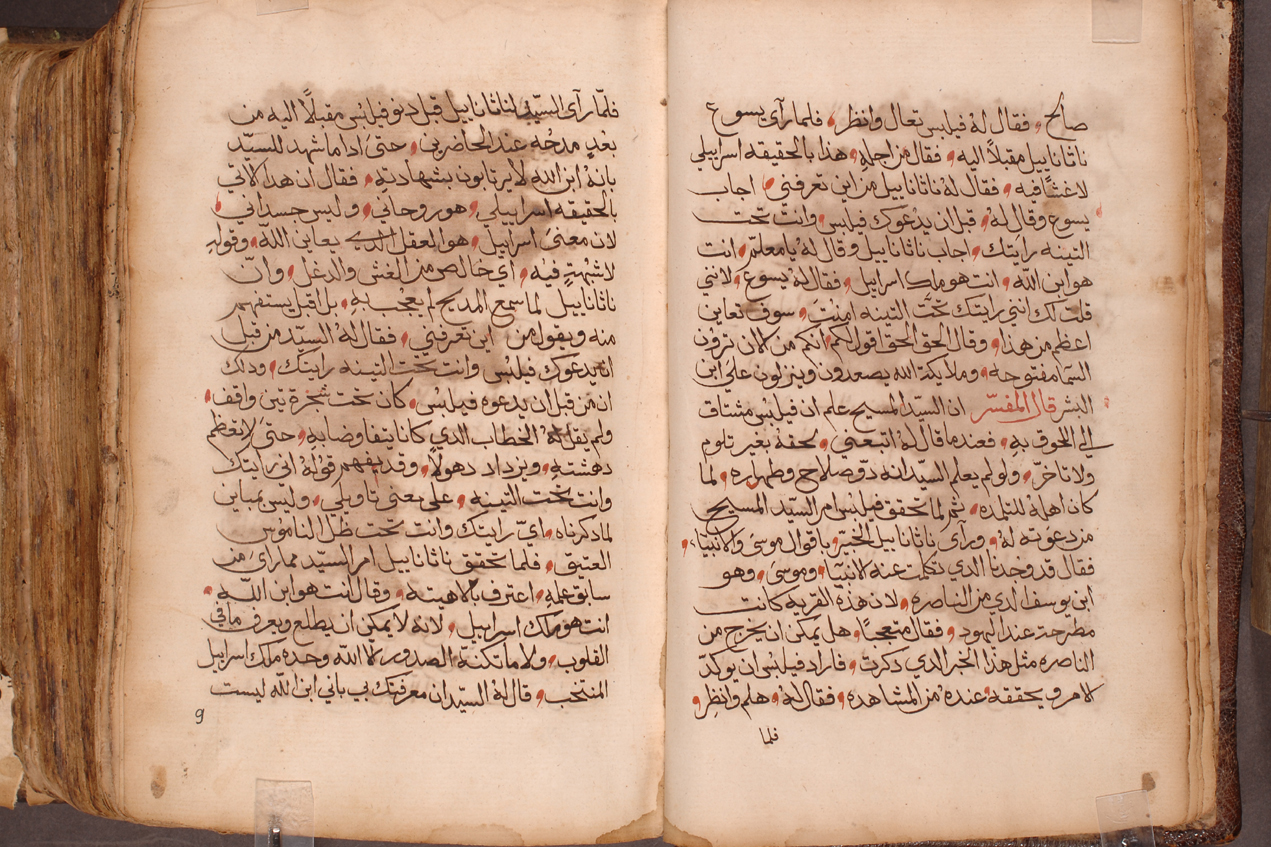 صالح، فقال له فيلبس تعال وانظر، فلما رآى يسوع
ناثانابيل مقبلاً اليه، فقال من اجله، هذا بالحقيقه اسراييلي
لا غش فيه، فقال له ناثانابيل من اين تعرفني، اجاب
يسوع وقال له، قبل ان يدعوك فيلبس، وانت تحت
التينه رايتك، اجاب ناثانابيل وقال له يا معلم، انت
هو ابن الله، انت هو ملك اسراييل، فقال له يسوع، لانني
قلت لك انني رايتك تحت التينه امنت، سوف تعاين
اعظم من هذا، وقال الحق الحق اقول لكم، انكم من الان ترون
السما مفتوحه، وملايكة الله يصعدون وينزلون على ابن
البشر قال المفسّر ان السيد المسيح علم ان فيلبس مشتاق
الى اللحوق به، فعندما قال له اتبعني، لحقه بغير تلوم
ولا تاخر، ولو لم يعلم السيد انه ذو صلاح وطهاره، لما
كان اهله للتلمده، ثم لما تحقق فيلبس امر السيد المسيح
من دعوته له، ورآى ناثانابيل الخبير، باقوال موسى والانبياء،
فقال قد وجدنا الدي تكلمت عنه الانبيا، وموسى، وهو
ابن يوسف الدي من الناصره، لان هذه القريه كانت
مطرحة عند اليهود، فقال متعجباً، هل يمكن ان يخرج من
الناصره مثل هذا الخبر الدي دكرت، فاراد فيلبس ان يوكد
الامر ويحققه، عنده من المشاهده، فقال له، هلم وانظر،
فلما
فلمّا رآى السيّد لناثانابيل قبل دنو فيلبس مقبلاً اليه من
بعد مدحه عند الحاضرين، حتى ادا ما شهد للسيّد
بانه ابن الله لا يرتابون بشهادته، فقال ان هدا الاتي
بالحقيقه اسراييلي، هو روحاني، وليس جسداني،
لان معنى اسراييل، هو العقل الدي يعاين الله، وقوله
لا شبهة فيه، اي خالص من الغش والدغل، وان
ناثانابيل لما سمع المديح لم يعجب به، بل اقبل يستفهم
منه ويقول من اين تعرفني، فقال له السيّد من قبل
ان يدعوك فيلبس وانت تحت التينه رايتك، ودلك
ان من قبل ان يدعوه فيلبس، كان تحت شجرة تين واقف،
ولم يقل له الخطاب الدي كانا يتفاوضا به، حتى لا تعظم
دهشته، ويزداد دهولاً، وقد يفهم قوله اني رايتك
وانت تحت التينه، على معنى تاويلي، وليس بمباين
لما دكرناه، اي رايتك وانت تحت ظل الناموس
العتيق، فلما تحقق ناثانابيل امر السيد مما راى من
سابق علمه، اعترف بالاهيته، وقال انت هو ابن الله،
انت هو ملك اسراييل، لانه لا يمكن ان يطلع ويعرف ما في
القلوب، ولا ما تكنه الصدور الا الله وحده ملك اسراييل
المنتخب، قال له السيد ان معرفتك بي باني ابن الله ليست
9